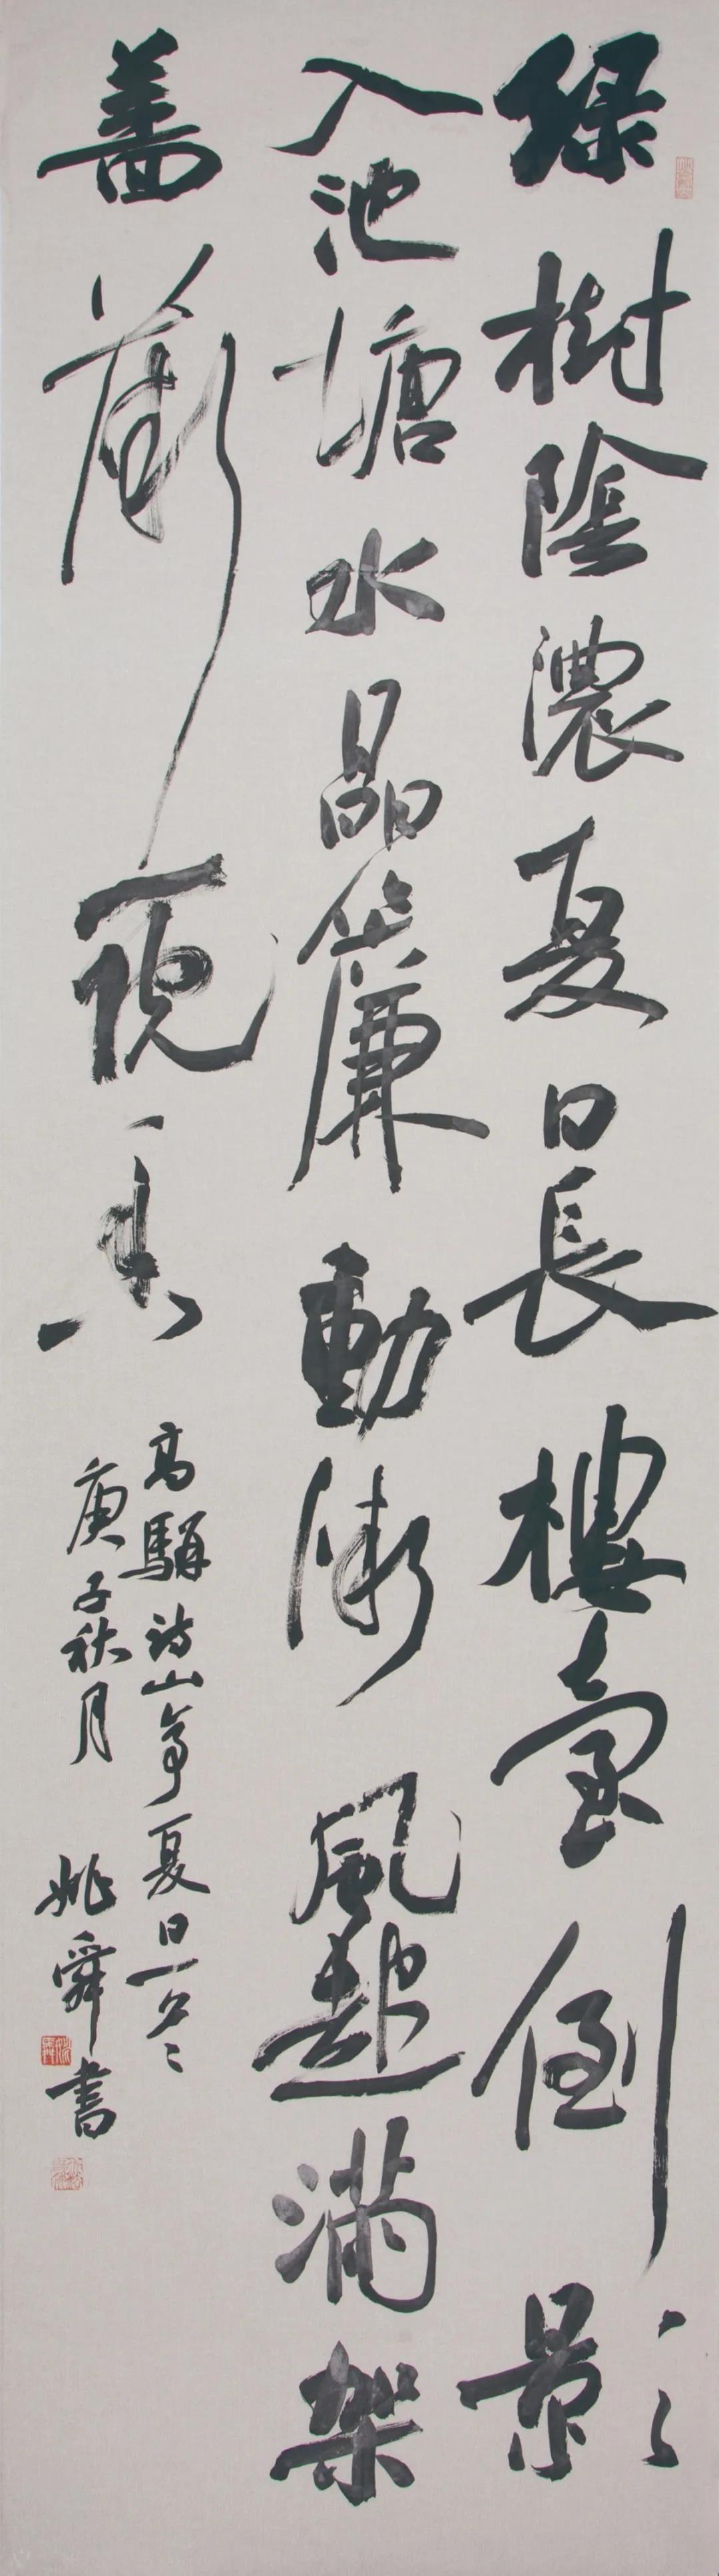 綠樹陰濃夏日長樓臺倒影
入池塘水晶簾動微風起滿架
薔薇一院香
高駢詩山亭夏日一
庚子秋月 姚舜書